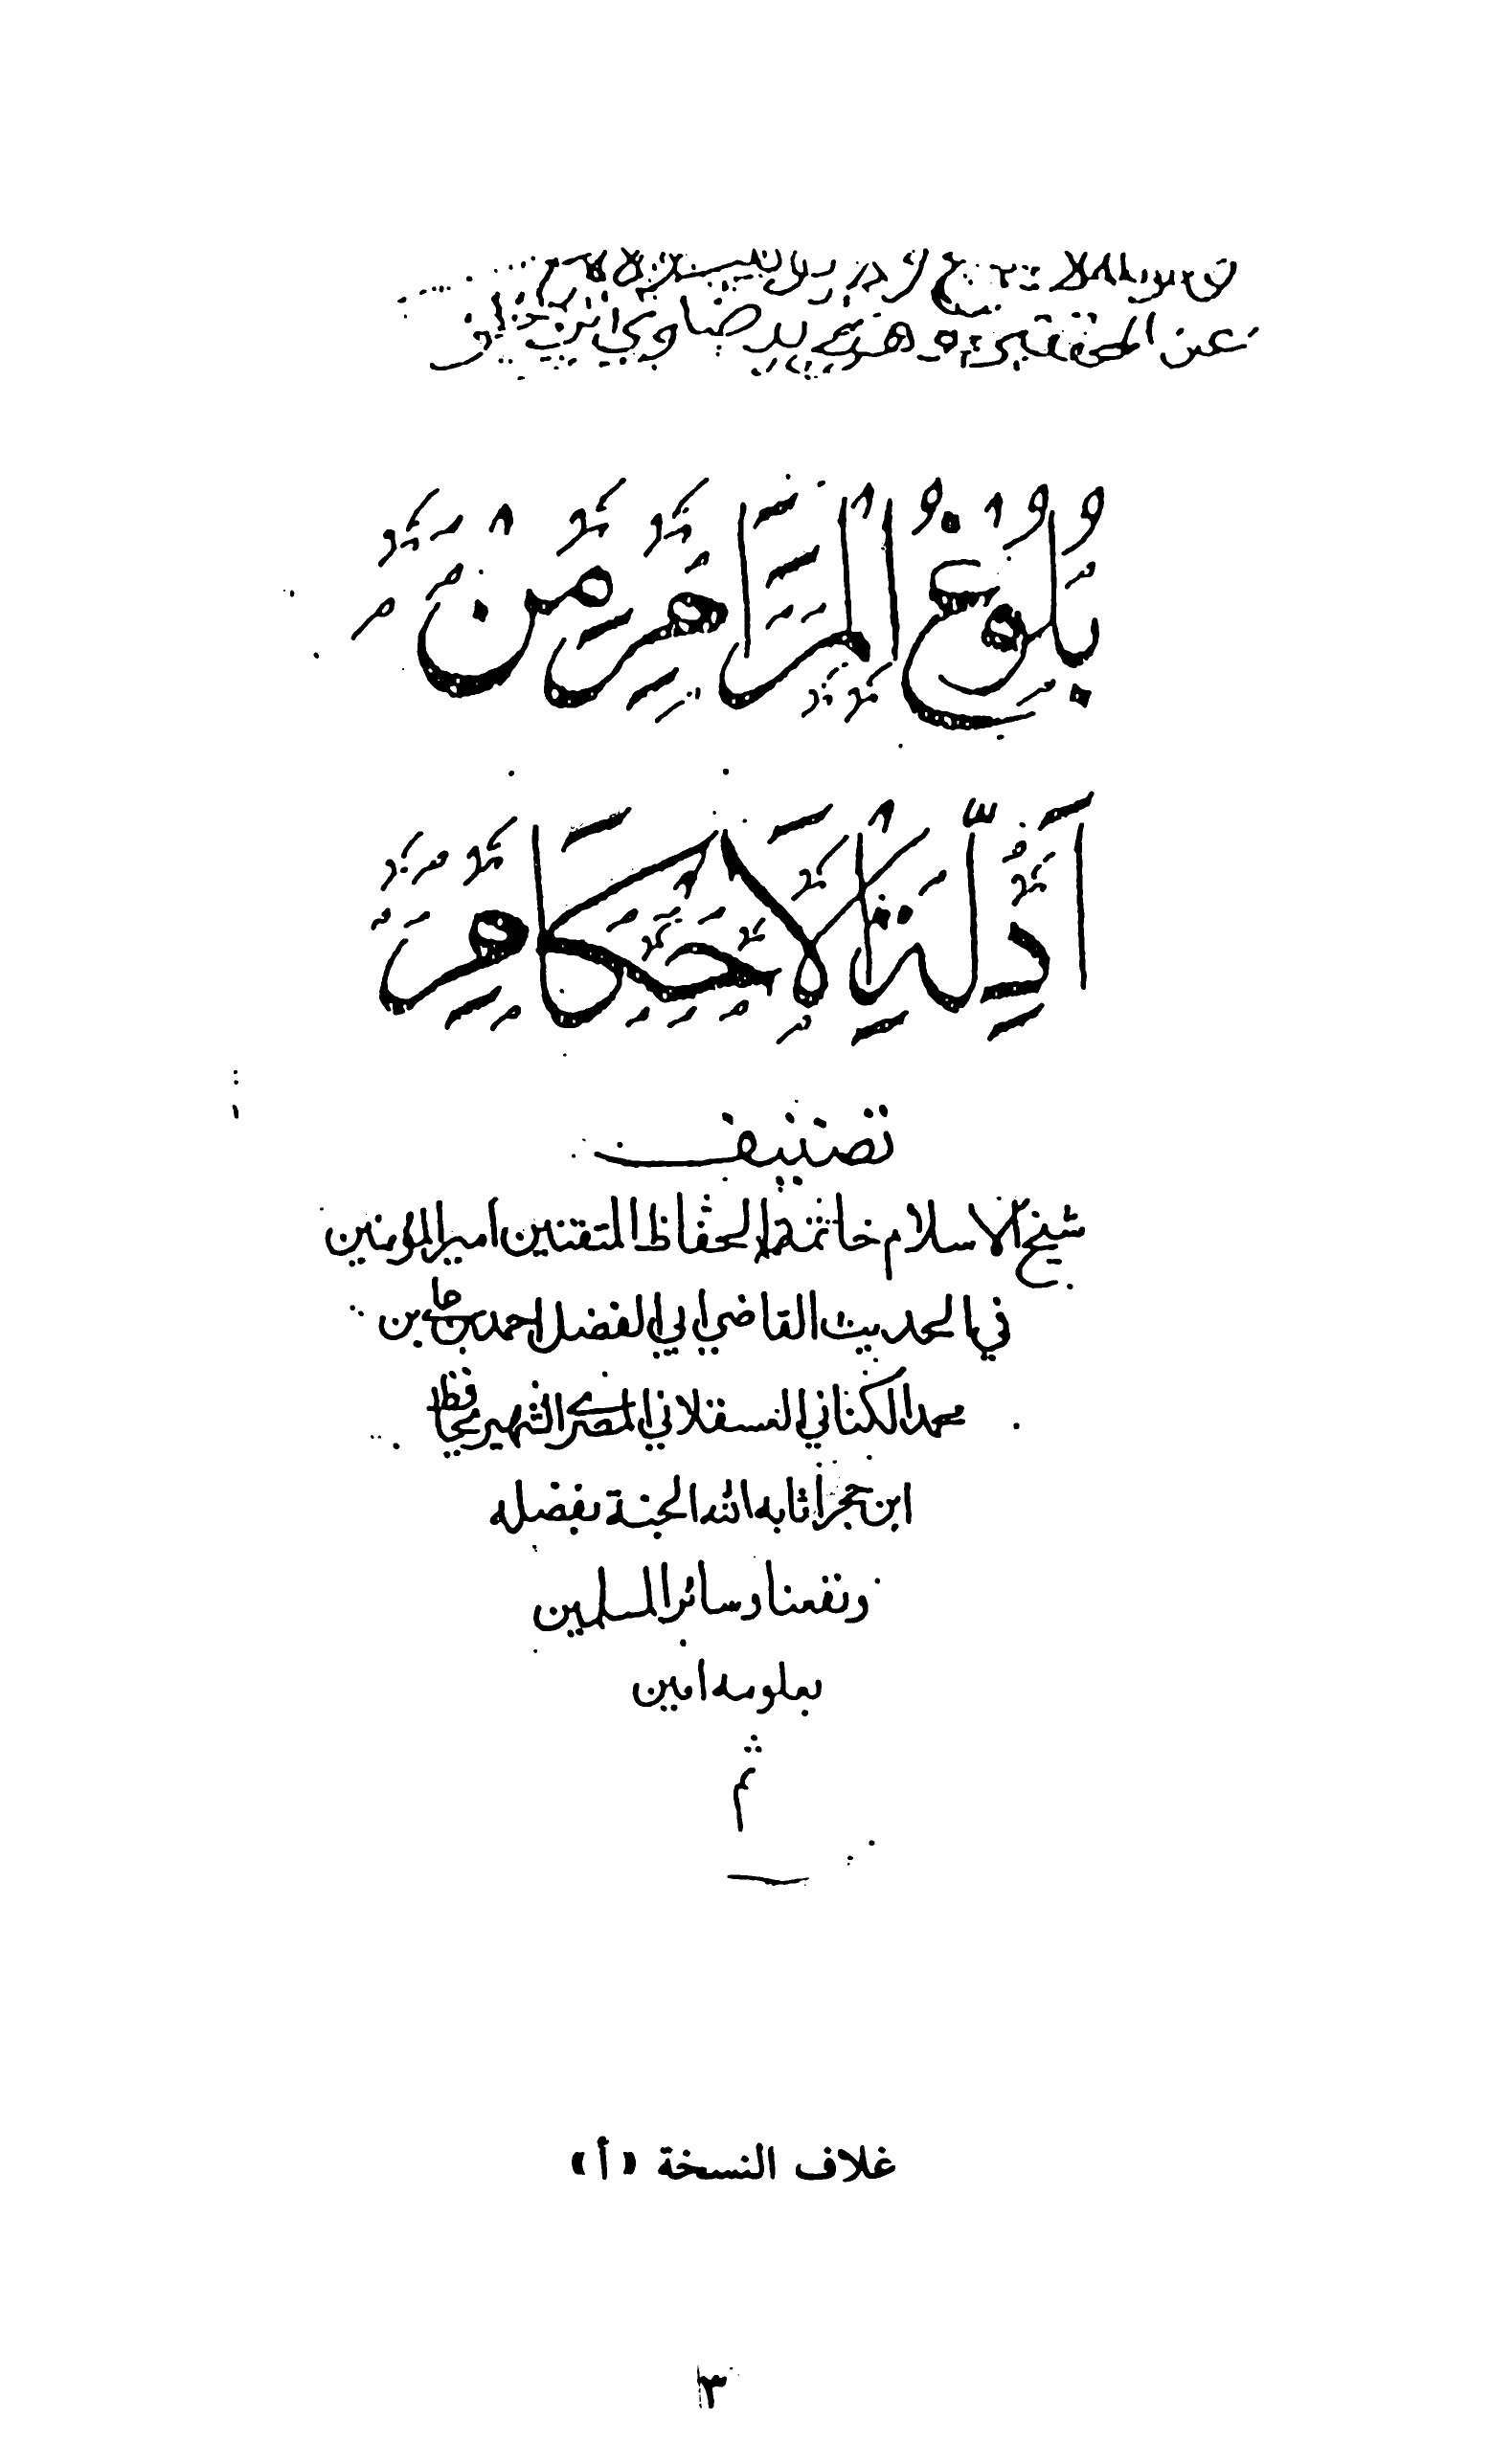 بُلُوغُ الْمَرَامِ مِنْ
اَدِلَّةِ الْاَحْكَامِ
تصنيف
شيخ الاسلام خاتمة الحفاظ المتقنين امير المؤمنين
في الحديث القاضي ابي الفضل احمد بن علي بن
محمد الكناني العسقلاني المصري الشهير
ابن حجر اثابه الله الجنة بفضله
ونفعنا وسائر المسلمين
بعلومه امين
م
غلاف النسخة «أ»
٣